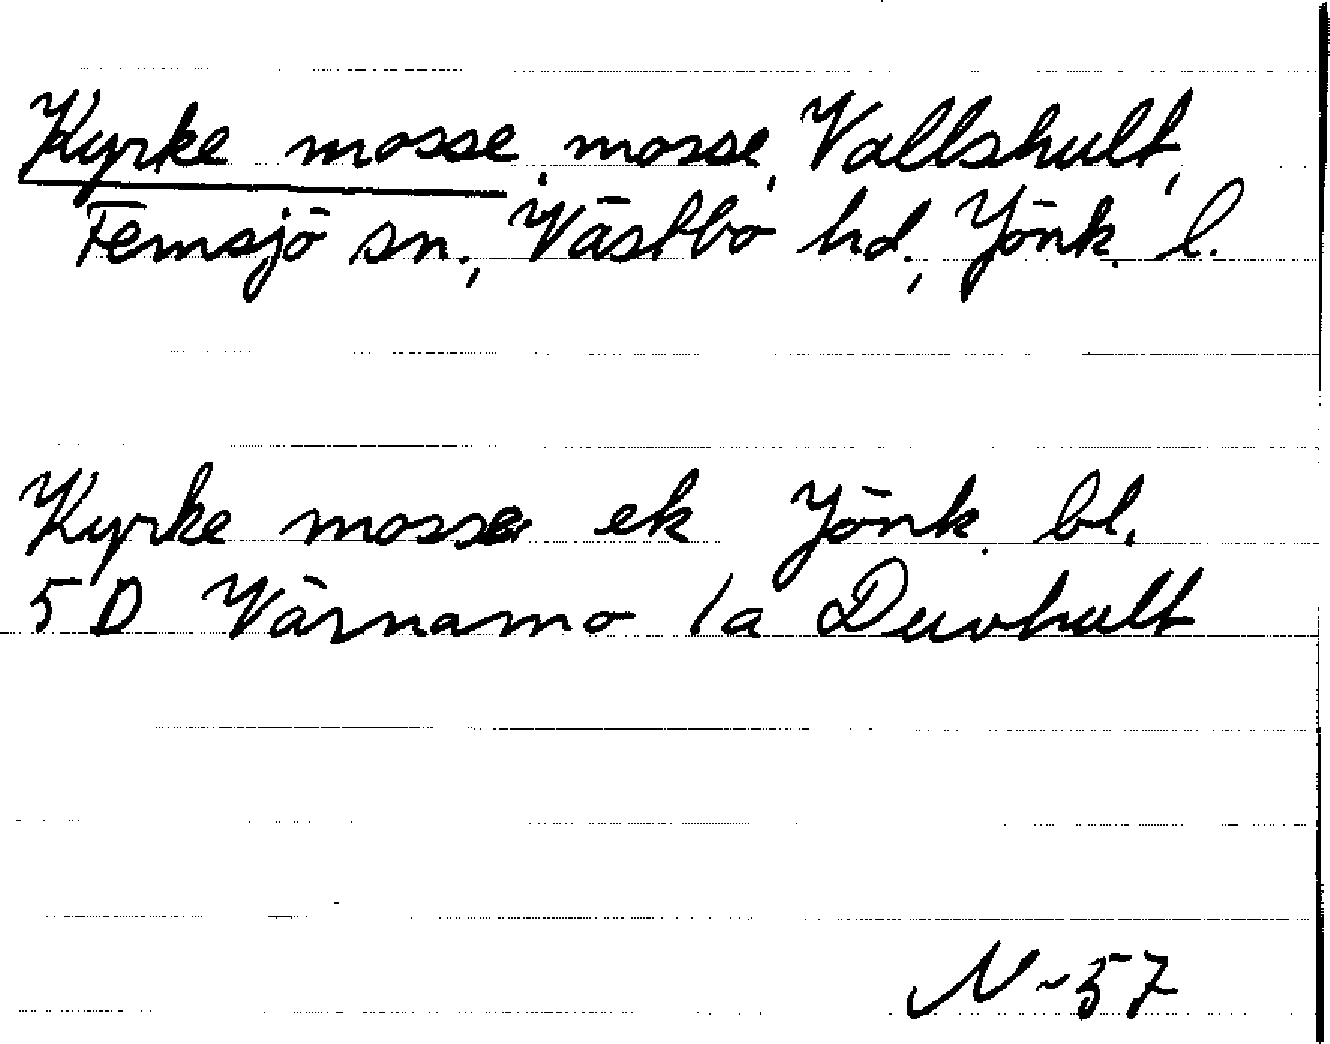 Kyrke mosse, mosse, Vallshult,
Femsjö sn., Västbo hd., Jönk. l.
Kyrke mosse ek Jönk. bl.
5 D Värnamo 1a Duvhult
N-57